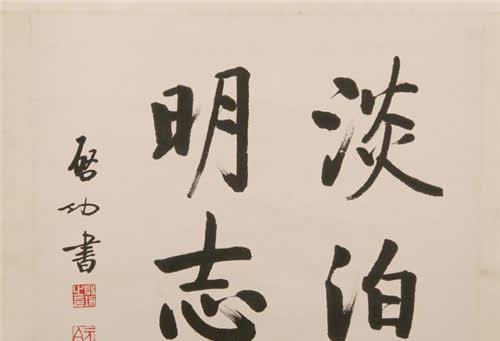 淡泊
明志
启功书